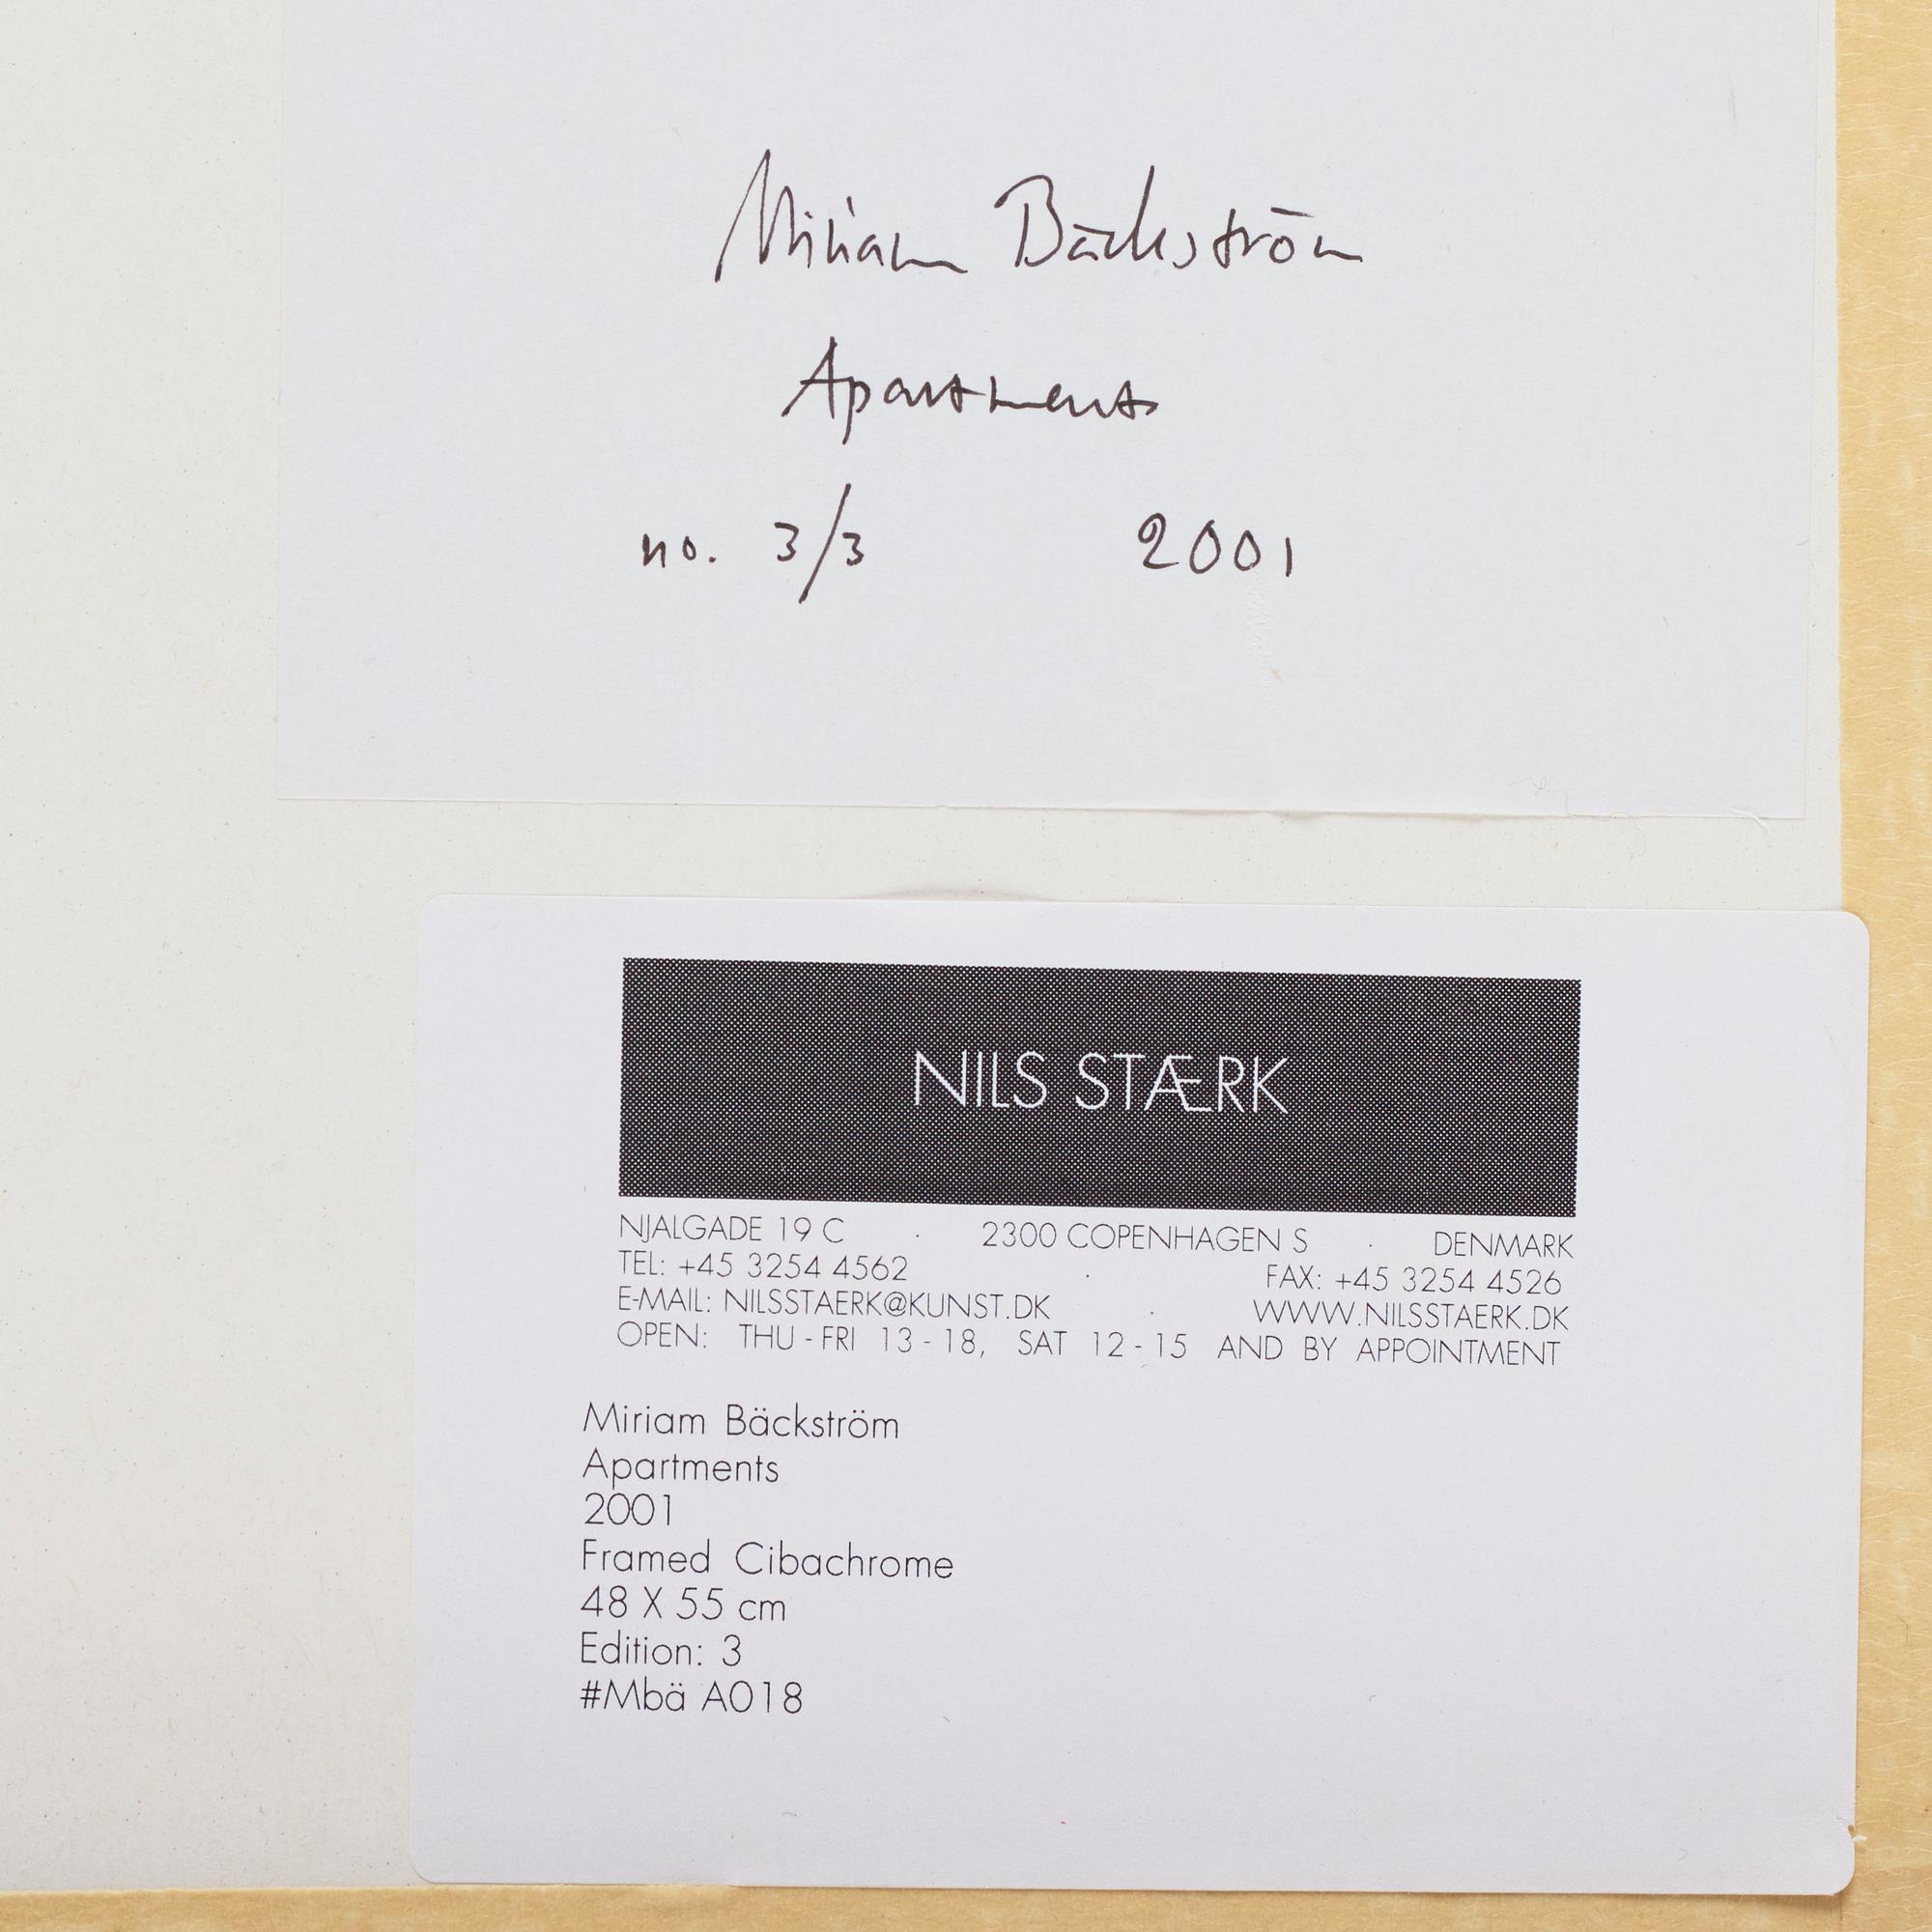 Miriam Bäckström
Apartments
no. 3/3 2001
NILS STÆRK
NJALGADE 19 C · 2300 COPENHAGEN S · DENMARK
TEL: +45 3254 4562 · FAX: +45 3254 4526
E-MAIL: NILSSTAERK@KUNST.DK · WWW.NILSSTAERK.DK
OPEN: THU - FRI 13 - 18, SAT 12 - 15 AND BY APPOINTMENT
Miriam Bäckström
Apartments
2001
Framed Cibachrome
48 X 55 cm
Edition: 3
#Mbä A018